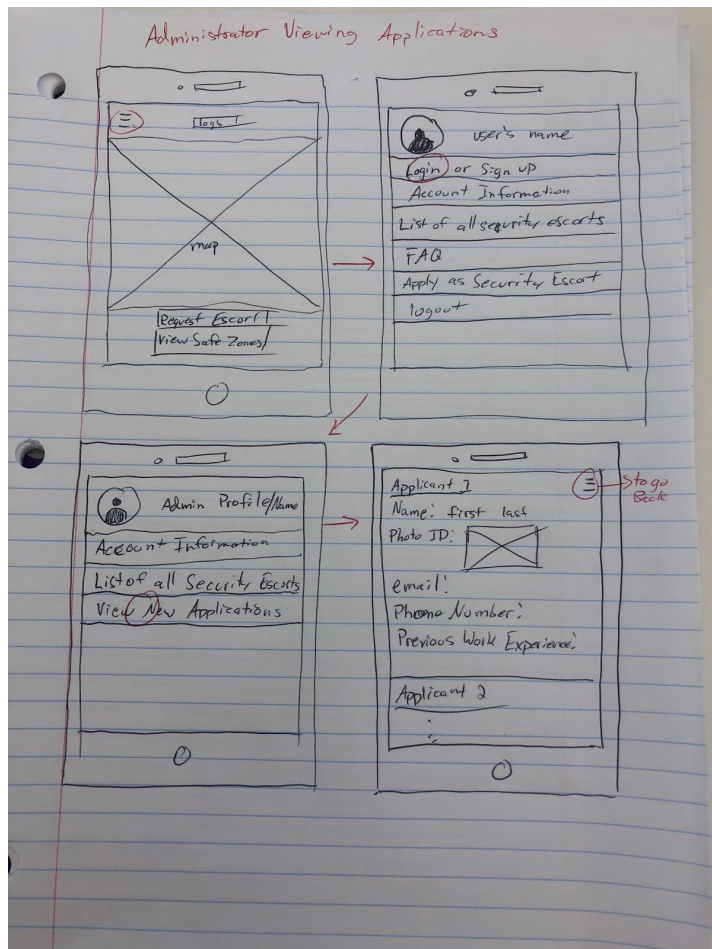 Administrator Viewing Applications
logo
map
Request Escort
View Safe Zones
user's name
Login or Sign up
Account Information
List of all security escorts
FAQ
Apply as Security Escort
logout
Admin Profile/Name
Account Information
List of all Security Escorts
View New Applications
Applicant 1
to go
Back
Name: first last
Photo ID:
email:
Phone Number:
Previous Work Experience:
Applicant 2